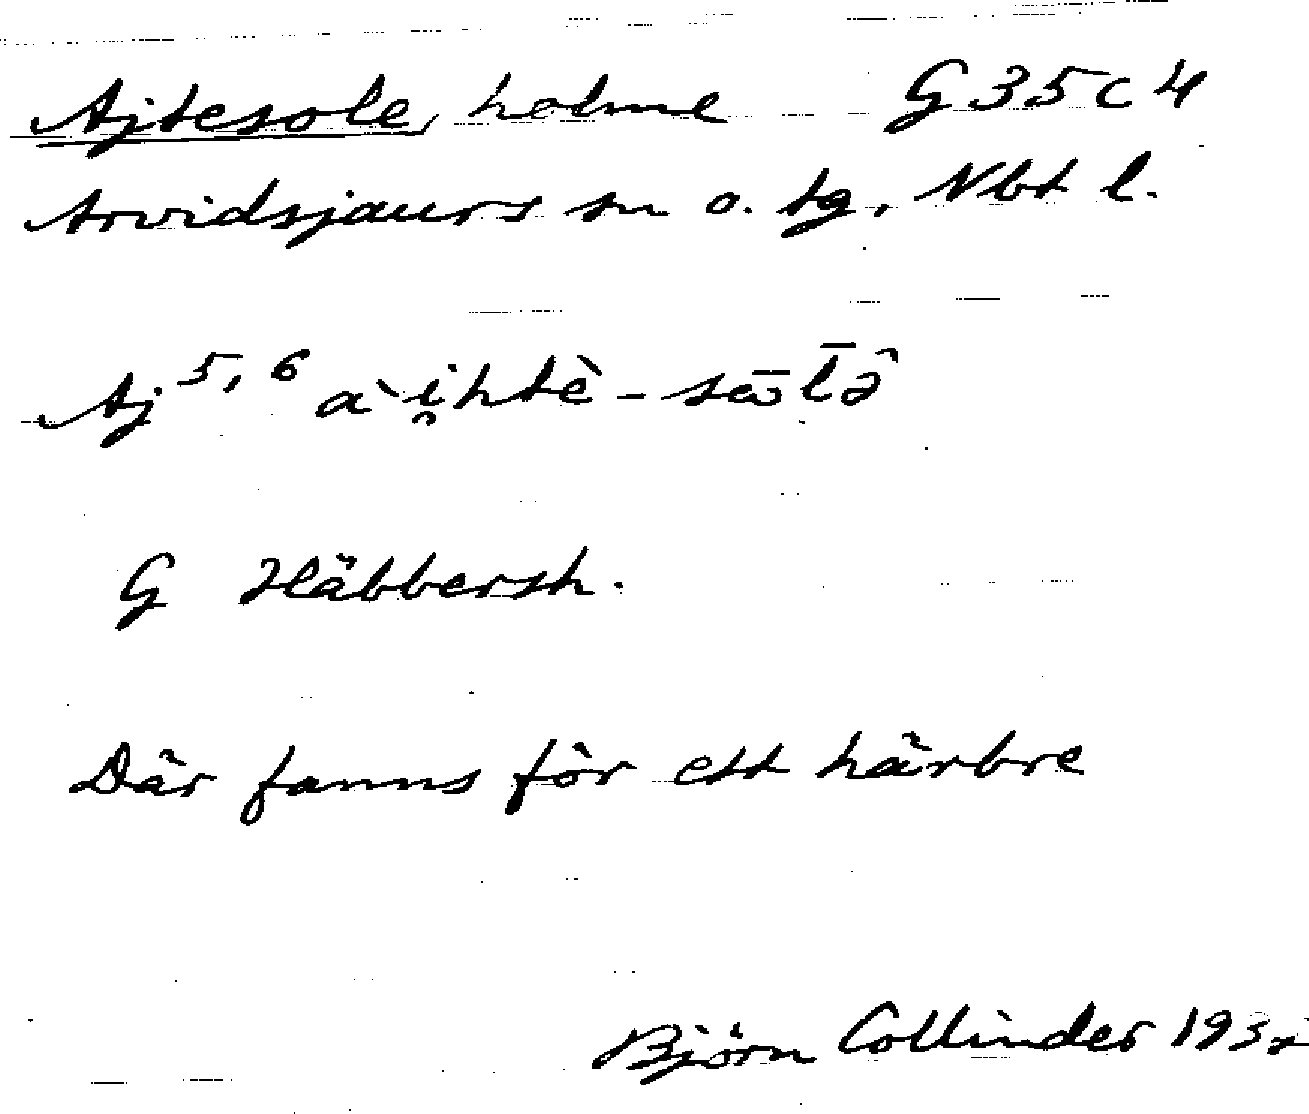 Ajtesole, holme G35c4
Arvidsjaurs sn o. tg, Nbt l.
Aj 5, 6 a`i̯htè-sɷ̄l̄ə̂
G Häbbersh.
Där fanns för ett härbre
Björn Collinder